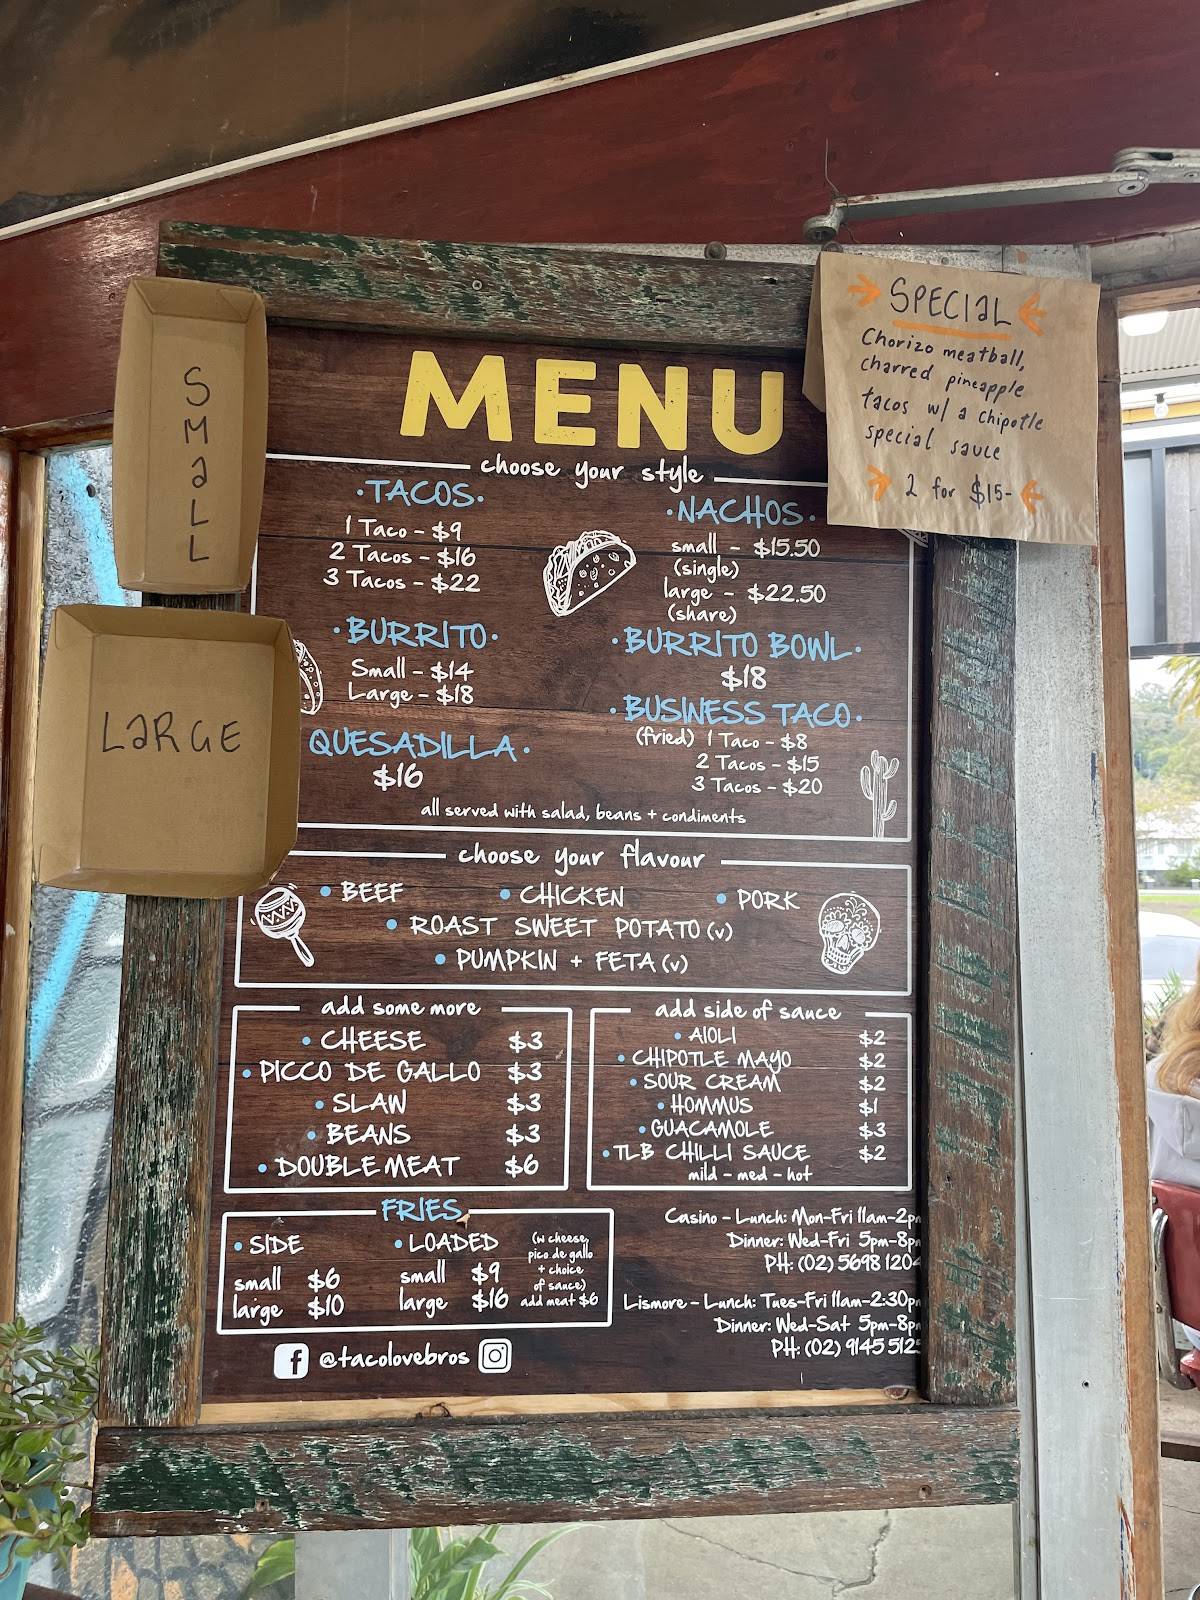 SMaLL
LaRGE
SPECIaL
Chorizo meatball,
charred pineapple
tacos w/ a chipotle
special sauce
2 for $15-
MENU
choose your style
·TACOS·
1 Taco - $9
2 Tacos - $16
3 Tacos - $22
·NACHOS·
small - $15.50
(single)
large - $22.50
(share)
·BURRITO·
Small - $14
Large - $18
·BURRITO BOWL·
$18
QUESADILLA·
$16
·BUSINESS TACO·
(fried) 1 Taco - $8
2 Tacos - $15
3 Tacos - $20
all served with salad, beans + condiments
choose your flavour
• BEEF • CHICKEN • PORK
• ROAST SWEET POTATO (v)
• PUMPKIN + FETA (v)
add some more
• CHEESE $3
• PICCO DE GALLO $3
• SLAW $3
• BEANS $3
• DOUBLE MEAT $6
add side of sauce
• AIOLI $2
• CHIPOTLE MAYO $2
• SOUR CREAM $2
• HOMMUS $1
• GUACAMOLE $3
• TLB CHILLI SAUCE $2
mild - med - hot
FRIES
• SIDE
small $6
large $10
• LOADED
small $9
large $16
(w cheese,
pico de gallo
+ choice
of sauce)
add meat $6
Casino - Lunch: Mon-Fri 11am-2pm
Dinner: Wed-Fri 5pm-8pm
PH: (02) 5698 1204
Lismore - Lunch: Tues-Fri 11am-2:30pm
Dinner: Wed-Sat 5pm-8pm
PH: (02) 9145 5125
f @tacolovebros